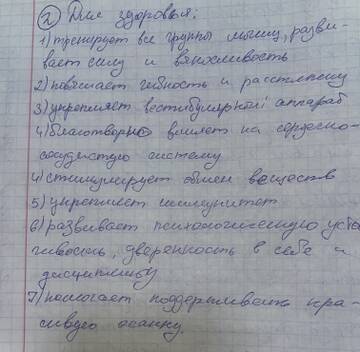 2 Для здоровья:
1) тренирует все группы мышц, разви-
вает силу и выносливость
2) повышает гибкость и растяжку
3) укрепляет вестибулярный аппараб
4) благотворно влияет на сердечно-
сосудистую систему
4) стимулирует обмен веществ
5) укрепляет иммунитет
6) развивает психологическую устой
чивость, уверенность в себе и
дисциплину
7) помогает поддерживать кра-
сивую осанку.